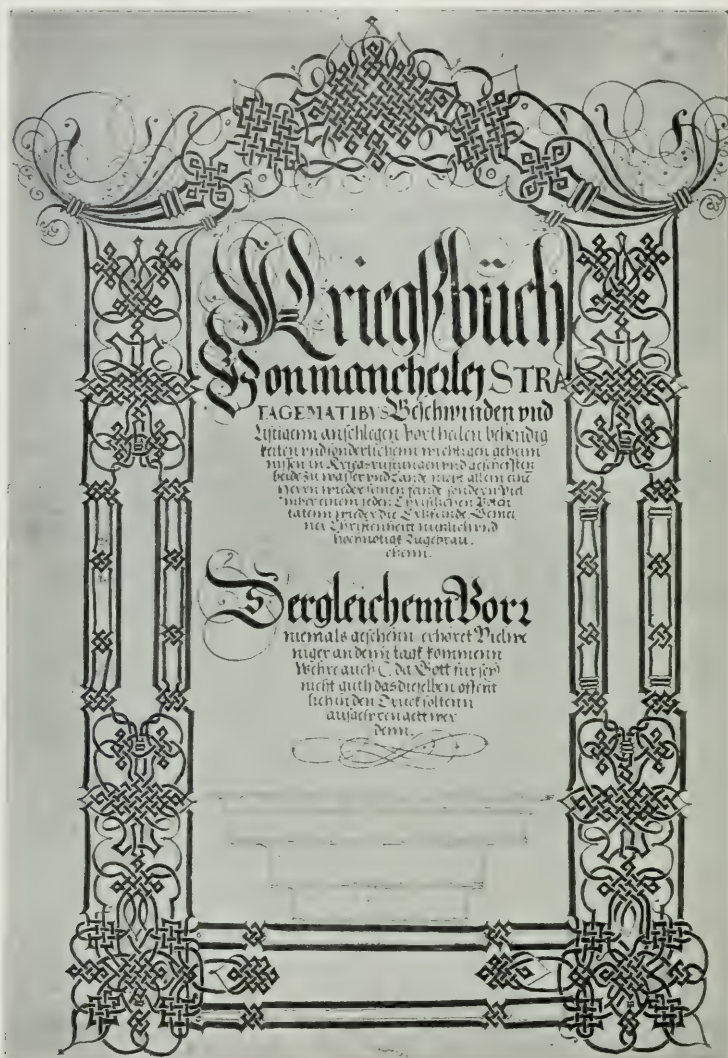 Kriegßbüch
Von mancherley STRA
TAGEMATIBVS Beschwinden vnd
Listigenn anschlegen vortheilen behendig
keiten vnd sonderlichenn wichtigen geheim
nissen in Kriegsrüstungen vnd gescheften
beide zu wasser vnd Lande nicht allein eine
Herrn wieder seinen feinde sondern viel
einem jeden Christlichen Poten
tatenn wieder die Erbfeinde Gemei
ner Christenheitt nutzlich vnd
hochnötigk Zugebrau
chenn.
Dergleichenn Vorz
niemals geschenn erhöret Vielwe
niger an denn tagk kommenn
Wehre auch C. da Gott fur sey
nicht guth das dieselben offent
lich in den Druck soltenn
werdenn.